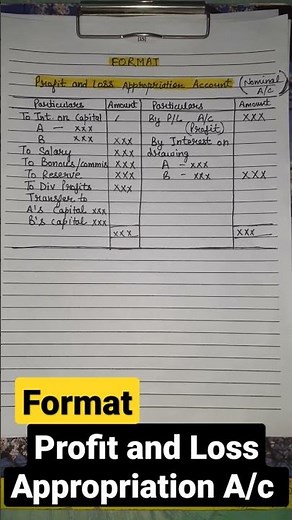 FORMAT
Profit and Loss Appropriation Account (Nominal A/C)
Particulars Amount Particulars Amount
To Int. on Capital By P/L A/C xxx
A - xxx (Profit)
B xxx xxx By Interest on
To Salary xxx drawing
To Bonous/commis xxx A - xxx
To Reserve xxx B - xxx xxx
To Div Profits xxx
Transfer to
A's Capital xxx
B's capital xxx
xxx xxx
Format
Profit and Loss
Appropriation A/c